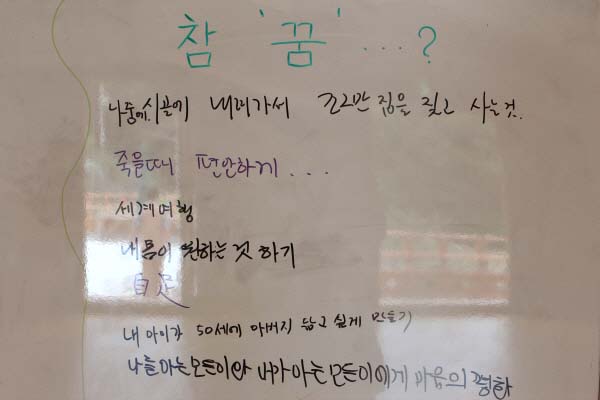 참 '꿈' ...?
나중에 시골에 내려가서 조그만 집을 짓고 사는 것.
죽을때 편안하게...
세계여행
내 몸이 원하는 것 하기
自足
내 아이가 50세에 아버지 닮고 싶게 만들기
나를 아는 모든이와 내가 아는 모든이에게 마음의 평화